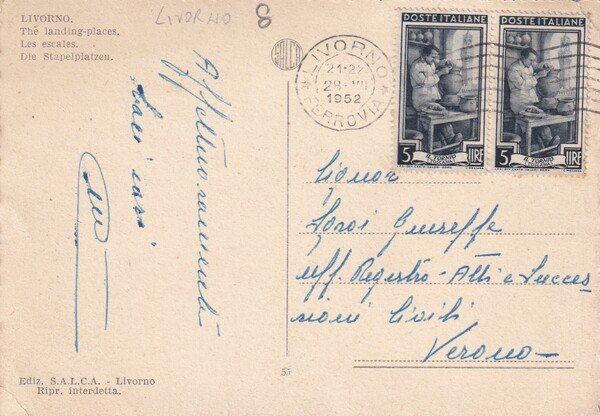 LIVORNO.
The landing-places.
Les escales.
Die Stapelplatzen.
LIVORNO
8
SALCA
LIVORNO
21-22
28·VII
1952
FERROVIA
POSTE ITALIANE
5 LIRE
IL TORNIO
POSTE ITALIANE
5 LIRE
IL TORNIO
Affettuosamente
baci cari
Signor
Giuseppe
uff. Registro - Atti e Succes
sioni Civili
Verona
Ediz. S.A.L.C.A. - Livorno
Ripr. interdetta.
55